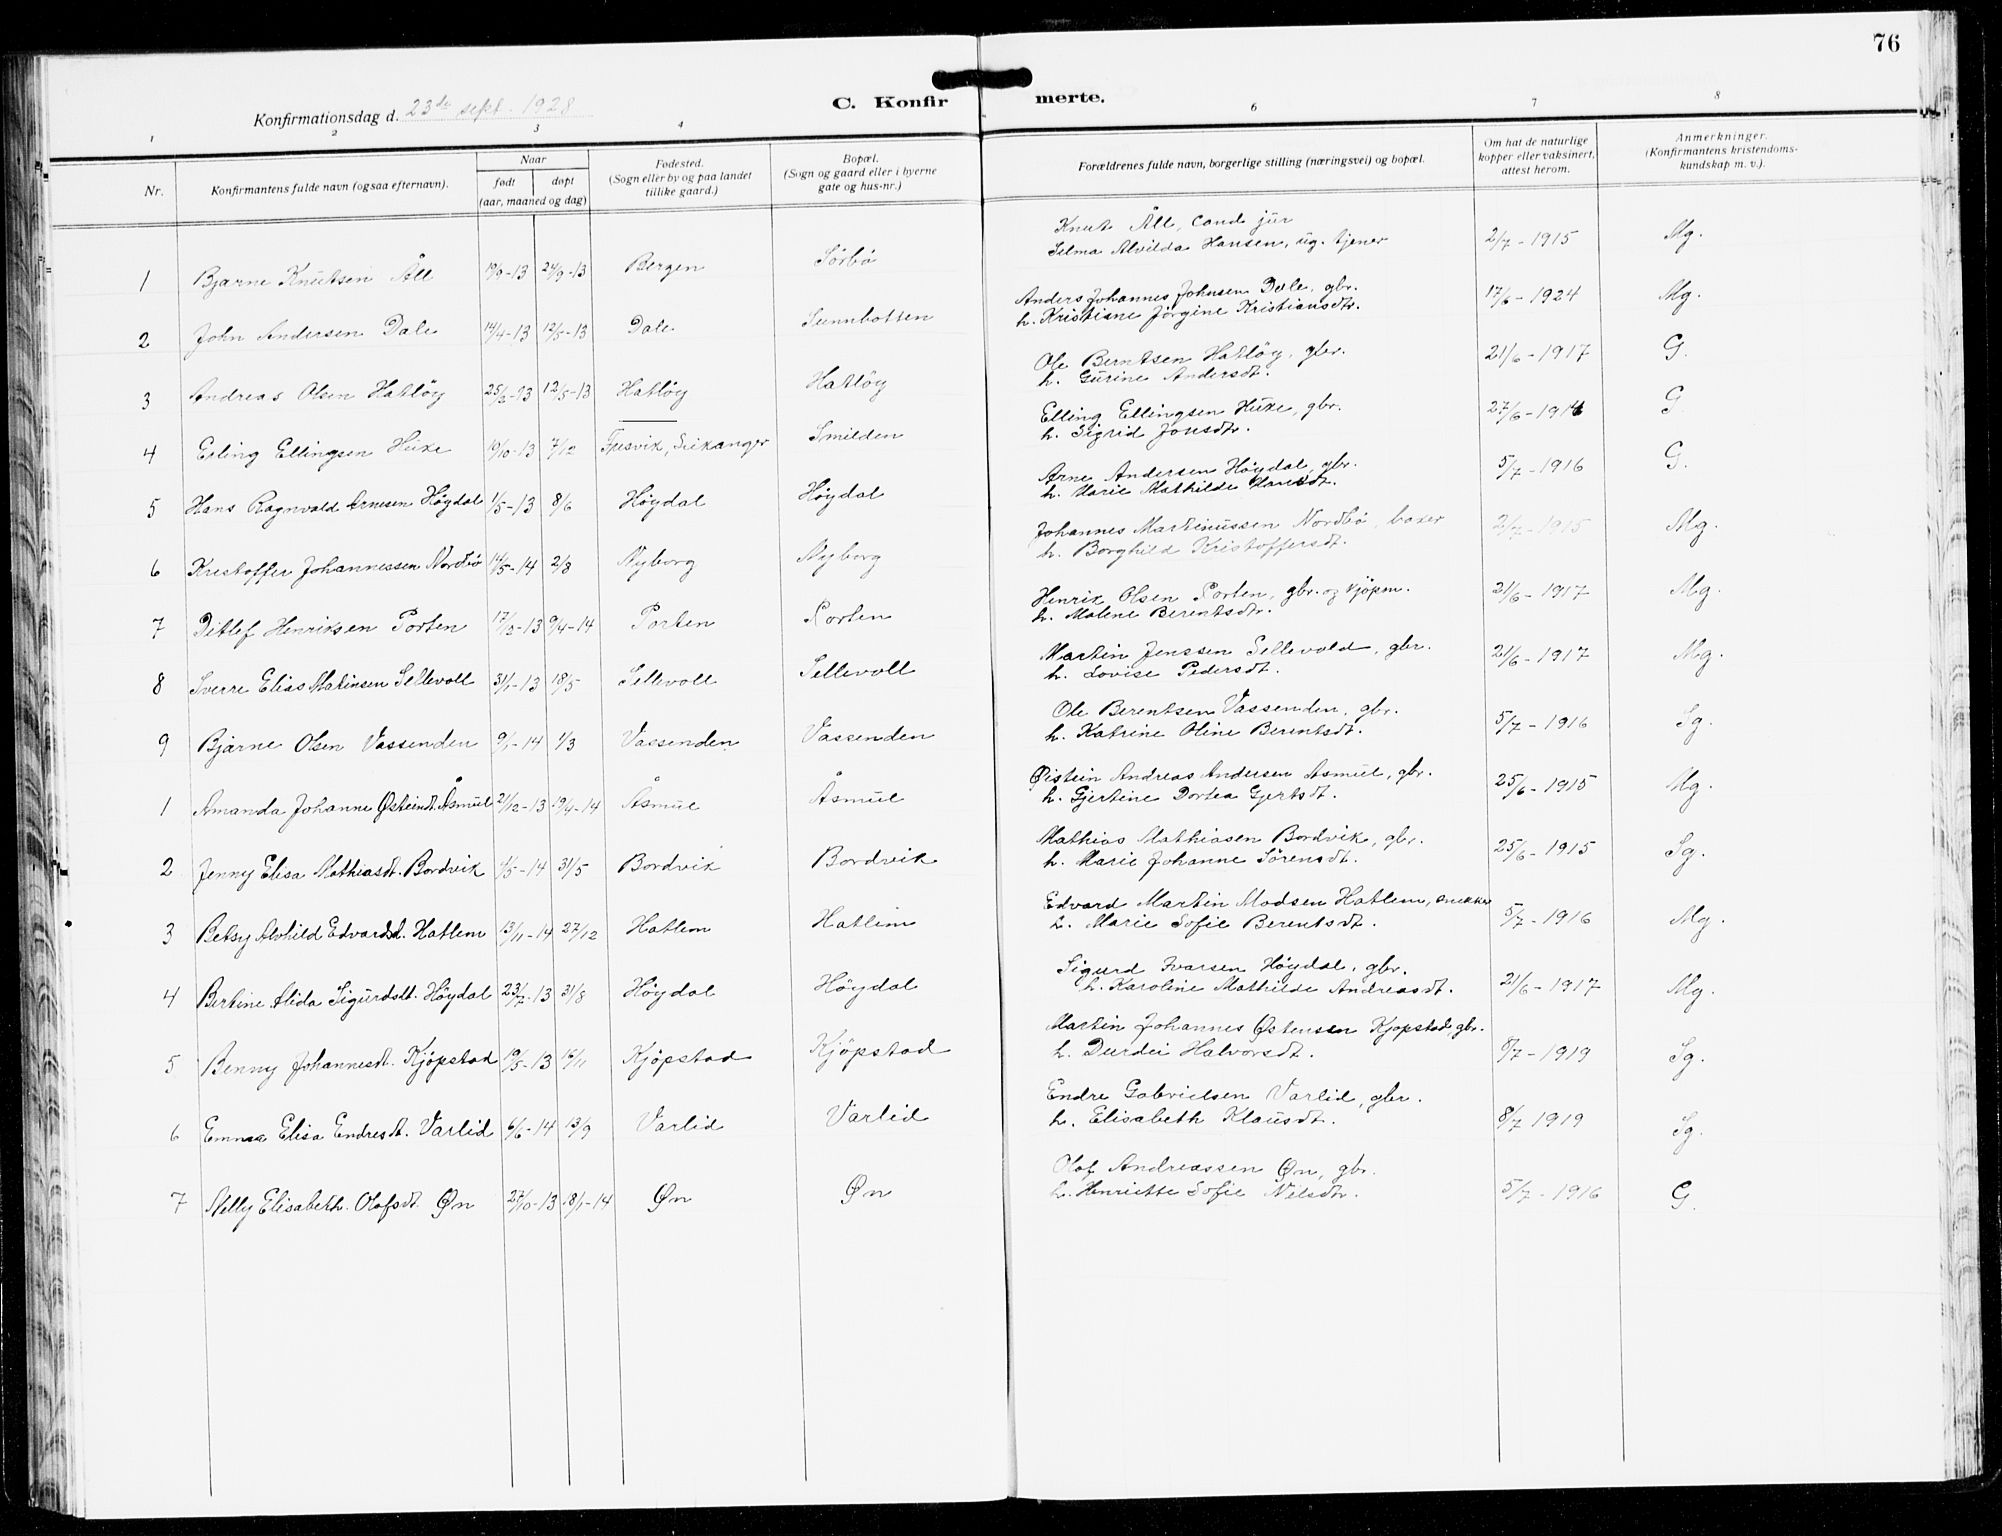 76
C. Konfirmerte.
Konfirmationsdag d. 23de sept. 1928
1 2 3 4 6 7 8
Nr. Konfirmantens fulde navn (ogsaa efternavn). Naar født døpt (aar, maaned og dag) Fødested. (Sogn eller by og paa landet tillike gaard.) Bopæl. (Sogn og gaard eller i byerne gate og hus-nr.) Forældrenes fulde navn, borgerlige stilling (næringsvei) og bopæl. Om hat de naturlige kopper eller vaksinert, attest herom. Anmerkninger. (Konfirmantens kristendomskundskap m. v.).
1 Bjarne Knutsen Åll 19/9-13 24/9-13 Bergen Sörbö Knut Åll, Cand jur
Selma Alvilda Hansen, ug. tjener 2/7-1915 Mg.
2 John Andersen Dale 14/4-13 12/5-13 Dale Sunnbotten Anders Johannes Johnsen Dale, gbr.
h. Kristiane Jörgine Kristiansdtr. 17/6-1924 Mg.
3 Andreas Olsen Hatlöy 25/2-13 12/5-13 Hatlöy Hatlöy Ole Berntsen Hatlöy, gbr.
h. Gurine Andersdt. 21/6-1917 G.
4 Erling Ellingsen Huke 19/10-13 7/12 Fresvik, Leikanger Smilden Elling Ellingsen Huke, gbr.
h. Sigrid Jonsdtr. 27/6-1914 G
5 Hans Ragnvald Arnesen Höydal 1/5-13 8/6 Höydal Höydal Arne Andersen Höydal, gbr.
h. Marie Mathilde Hansdt. 5/7-1916 G.
6 Kristoffer Johannessen Nordbö 14/5-14 2/8 Nyborg Nyborg Johannes Martinussen Nordbö, baker
h. Borghild Kristoffersdt. 2/7-1915 Mg.
7 Ditlef Henriksen Porten 17/12-13 9/4-14 Porten Porten Henrik Olsen Porten, gbr. og kjöpm.
h. Malene Berentsdtr. 21/6-1917 Mg.
8 Sverre Elias Matinsen Sellevoll 31/1-13 18/5 Sellevoll Sellevoll Martin Jenssen Sellevold, gbr.
h. Lovise Pedersdt. 21/6-1917 Mg.
9 Bjarne Olsen Vassenden 9/1-14 1/3 Vassenden Vassenden Ole Berentsen Vassenden, gbr.
h. Katrine Oline Berentsdt. 5/7-1916 Sg.
1 Amanda Johanne Østeindt. Åsmul 21/12-13 19/4-14 Åsmul Åsmul Øistein Andreas Andersen Åsmul, gbr.
h. Gjertine Dortea Gjertsdt. 25/6-1915 Mg.
2 Jenny Elisa Mathiasdt. Bordvik 4/5-14 31/5 Bordvik Bordvik Mathias Mathiasen Bordvik, gbr.
h. Marie Johanne Sörensdt. 25/6-1915 Sg.
3 Betsy Alvhild Edvardsd. Hatlem 13/11-14 27/12 Hatlem Hatlem Edvard Martin Madsen Hatlem, snekker
h. Marie Sofie Berentsdt. 5/7-1916 Mg.
4 Bertine Alida Sigurdsdt. Höydal 23/7-13 31/8 Höydal Höydal Sigurd Ivarsen Höydal, gbr.
h. Karoline Mathilde Andreasdt. 21/6-1917 Mg.
5 Benny Johannesdt. Kjöpstad 19/5-13 16/11 Kjöpstad Kjöpstad Martin Johannes Østensen Kjöpstad, gbr.
h. Durdei Halvorsdt. 8/7-1919 Sg.
6 Emma Elisa Endresdt. Varlid 6/6-14 13/9 Varlid Varlid Endre Gabrielsen Varlid, gbr.
h. Elisabeth Klausdt. 8/7 1919 Sg.
7 Nelly Elisabeth Olafsdt. Øn 27/10-13 18/1-14 Øn Øn Olaf Andreassen Øn, gbr.
h. Henriette Sofie Nilsdtr. 5/7-1916 G.